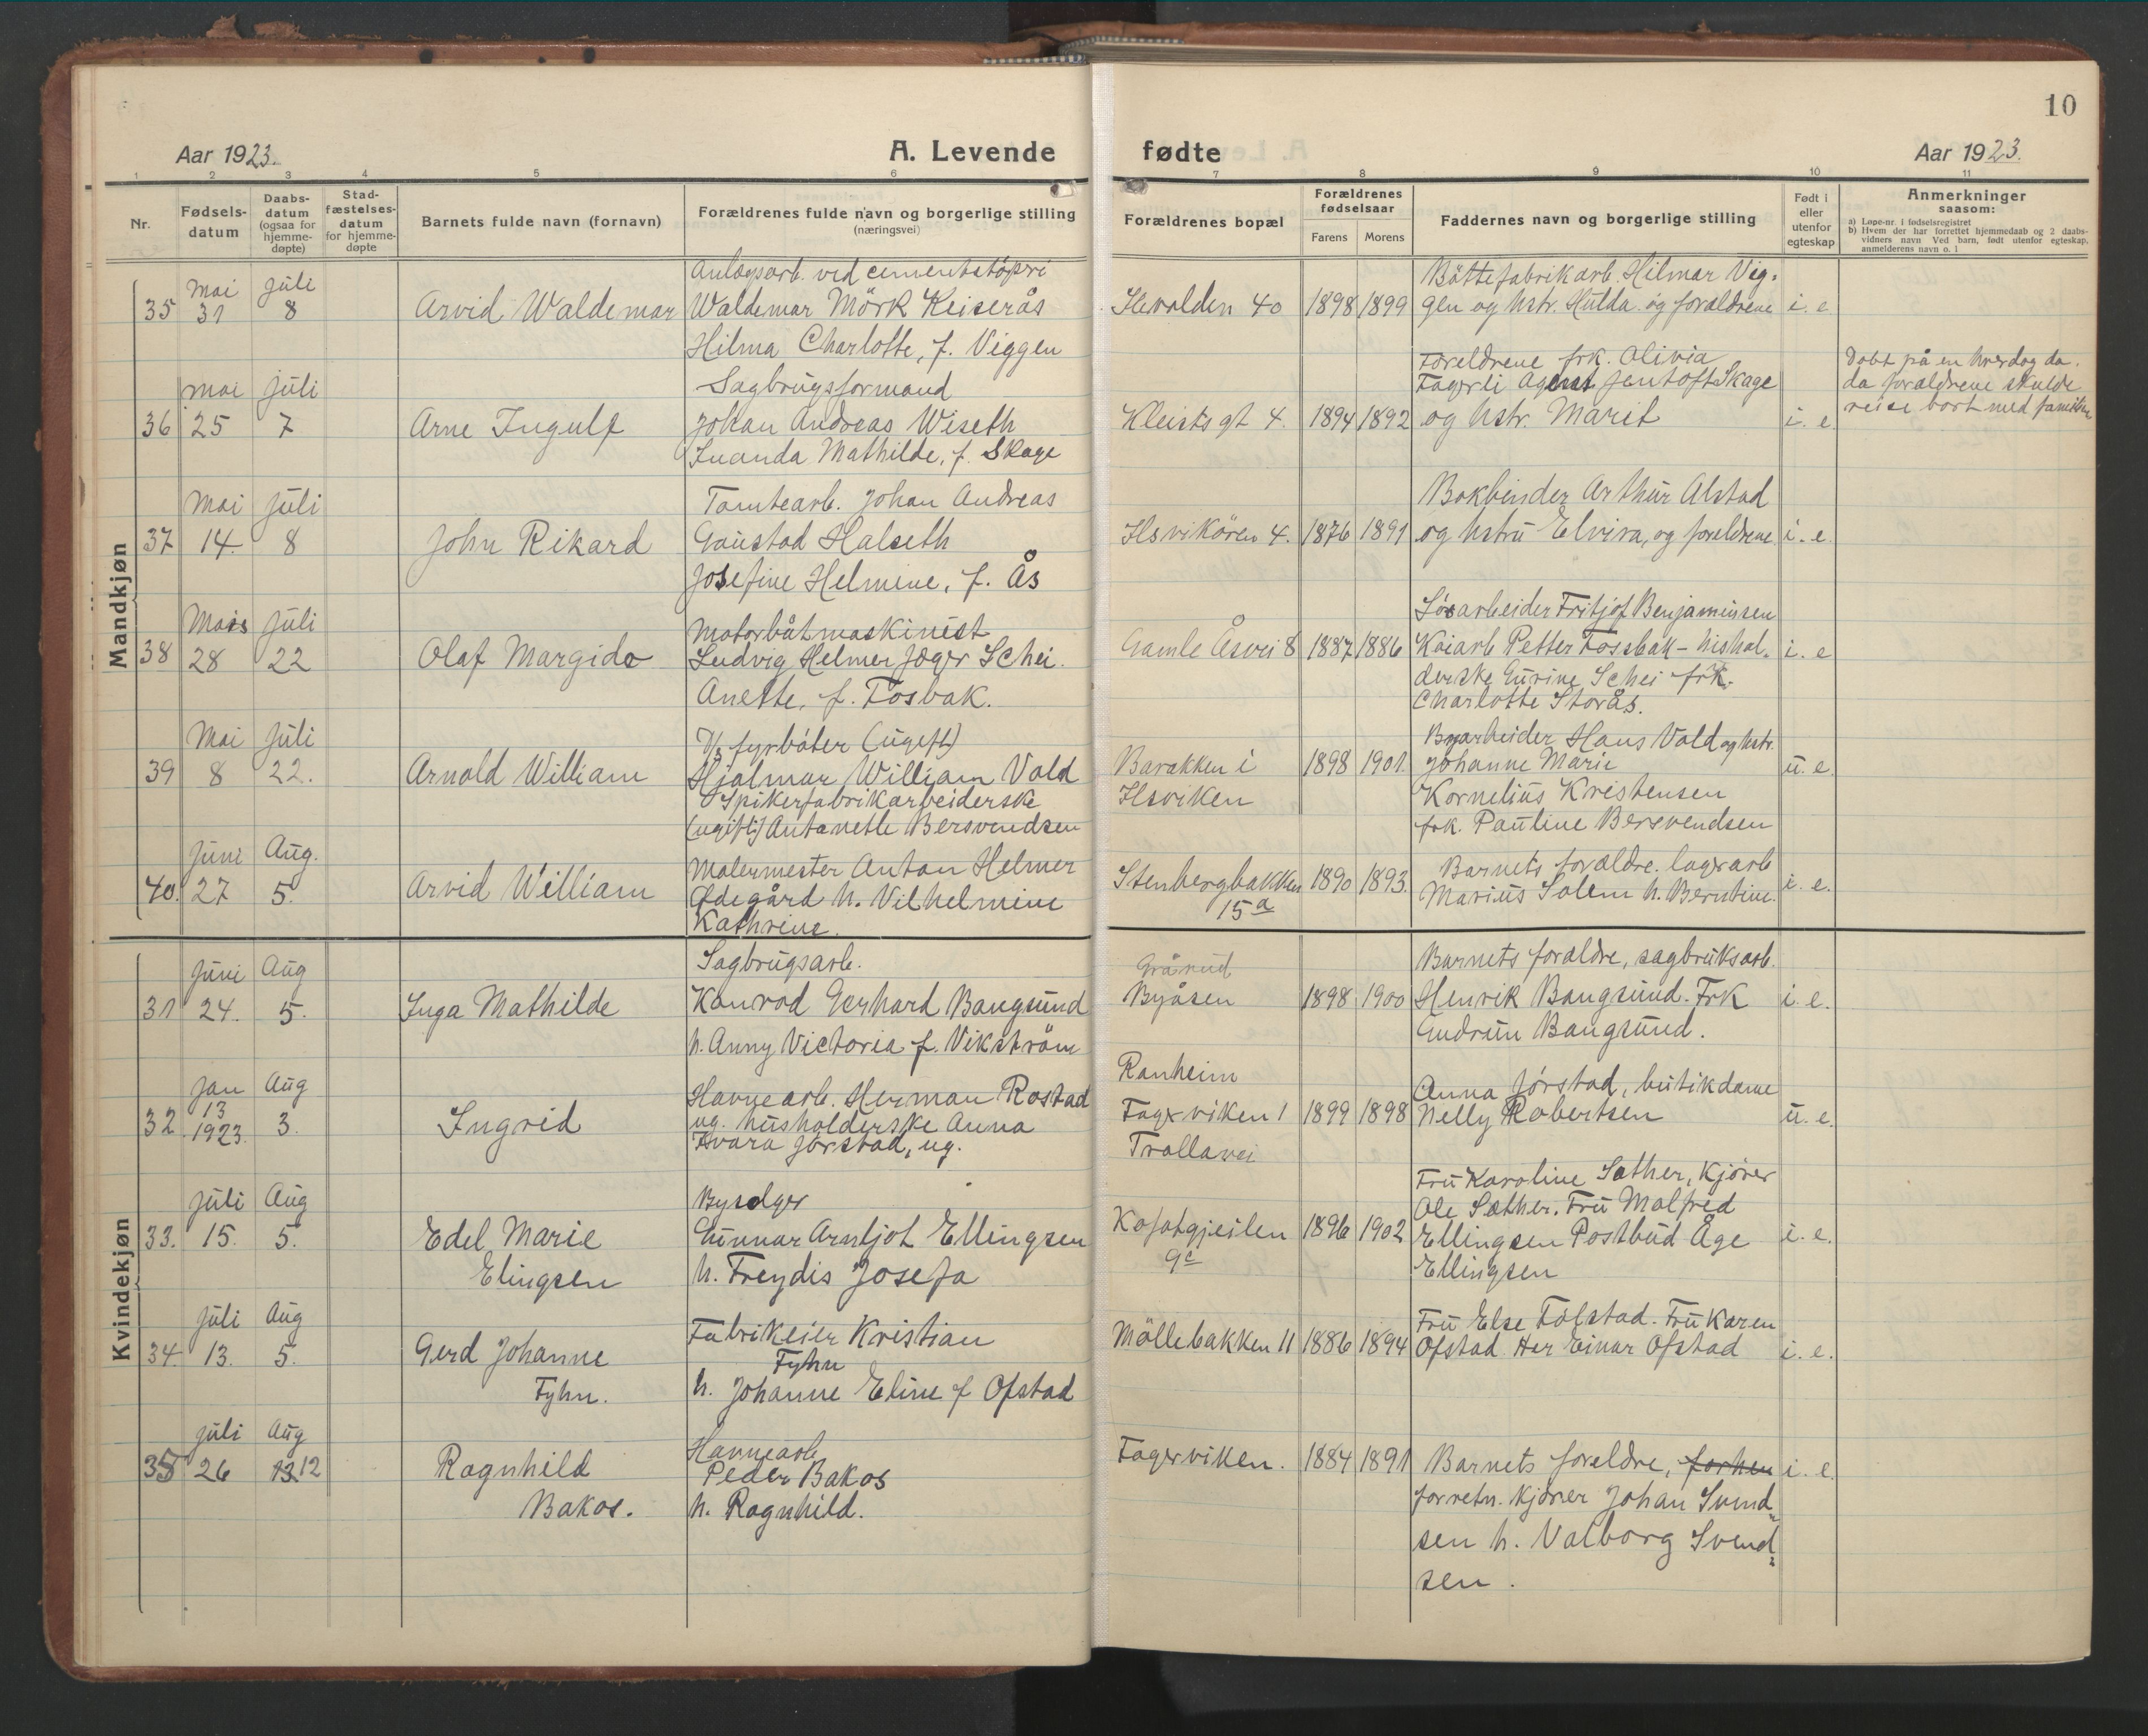 10
Aar 1923.
A. Levende
fødte
Aar 1923.
1 2 3 4 5 6 7 8 9 10 11
Nr.
Fødsels-
datum
Daabs-
datum
(ogsaa for
hjemme-
døpte)
Stad-
fæstelses-
datum
for hjemme-
døpte
Barnets fulde navn (fornavn)
Forældrenes fulde navn og borgerlige stilling
(næringsvei)
Forældrenes bopæl
Forældrenes
fødselsaar
Farens
Morens
Faddernes navn og borgerlige stilling
Født i
eller
utenfor
egteskap
Anmerkninger
saasom:
a) Løpe-nr. i fødselsregistret
b) Hvem der har forrettet hjemmedaab og 2 daabs-
vidners navn Ved barn, født utenfor egteskap,
anmelderens navn o. l
Mandkjøn
35
Mai
31
Juli
8
Arvid Waldemar
Anlægsarb. ved cementstöperi
Waldemar Mörk Keiserås
Hilma Charlotte, f. Viggen
Ilevolden 40
1898 1899
Böttefabrikarb. Hilmar Vig-
gen og hstr. Hulda og forældrene
i. e
36
Mai
25
Juli
7
Arne Ingulf
Sagbrugsformand
Johan Andreas Wiseth
Inanda Mathilde, f. Skage
Kleists gt 4.
1894 1892
Foreldrene frk. Olivia
Fagerli Agent Jentoft Skage
og hstr. Marit
i. e.
Dobt på en hverdag da
da forældrene skulde
reise bort med familien
37
Mai
14.
Juli
8
John Rikard
Tomtearb. Johan Andreas
Gaustad Halseth
Josefine Helmine, f. Ås
Ilsvikören 4.
1876 1891
Bokbinder Arthur Alstad
og hstru Elvira, og foreldrene
i. e.
38
Mars
28
Juli
22
Olaf Margido
Motorbåtmaskinist
Ludvig Helmer Jæger Schei.
Anette, f. Fosbak.
Gamle Åsvei 8
1887 1886
Lösarbeider Fritjof Benjaminsen
Kaiarb Petter Fossbak - hishol-
derske Gurine Schei frk.
Charlotte Storås.
i. e
39
Mai
8
Juli
22.
Arnold William
D/s fyrböter (ugift)
Hjalmar William Vold
Spikerfabrikarbeiderske
(ugift) Antonette Bersvendsen
Barakken i
Ilsviken
1898 1901.
Byarbeider Hans Vold og hstr.
Johanne Marie
Kornelius Kristensen
frk. Pauline Bersvendsen
u. e.
40.
Juni
27
Aug.
5.
Arvid William
Malermester Anton Helmer
Ødegård h. Vilhelmine
Kathrine.
Stenbergbakken
15a
1890 1893.
Barnets forældre. lagerarb
Marius Solem h. Berntine.
i. e.
Kvindekjøn
31
Juni
24.
Aug
5.
Inga Mathilde
Sagbrugsarb.
Konrad Gerhard Bangsund
h. Anny Victoria f. Vikström
Byåsen
1898 1900
Barnets forældre, sagbruksarb.
Henrik Bangsund. Frk
Gudrun Bangsund.
i. e.
32
Jan
13
1923.
Aug
3.
Ingrid
Havnearb. Herman Rostad
ug. husholderske Anna
Kvara Jörstad, ug.
Ranheim
Fagerviken 1
Trollavei
1899 1898
Anna Jörstad, butikdame
Nelly Robertsen
u. e.
33.
Juli
15.
Aug
5.
Edel Marie
Elingsen
Byselger
Gunnar Arntjot Ellingsen
h. Freydis Josefa
Kofotgjeilen
9c
1896 1902
Fru Karoline Sæther, Kjörer
Ole Sæther. Fru Malfred
Ellingsen Postbud Åge
Ellingsen
i. e.
34.
Juli
13.
Aug
5.
Gerd Johanne
Fyhn.
Fabrikeier Kristian
Fyhn
h. Johanne Eline f Ofstad
Möllebakken 11
1886 1894
Fru Else Folstad. Fru Karen
Ofstad Her Einar Ofstad
i. e.
35
Juli
26
Aug
12
Ragnhild
Bakos.
Havnearb
Peder Bakos
h. Ragnhild.
Fagerviken.
1884 1891
Barnets foreldre, forhen
forretn. kjörer Johan Svend-
sen h. Valborg Svend-
sen.
i. e.